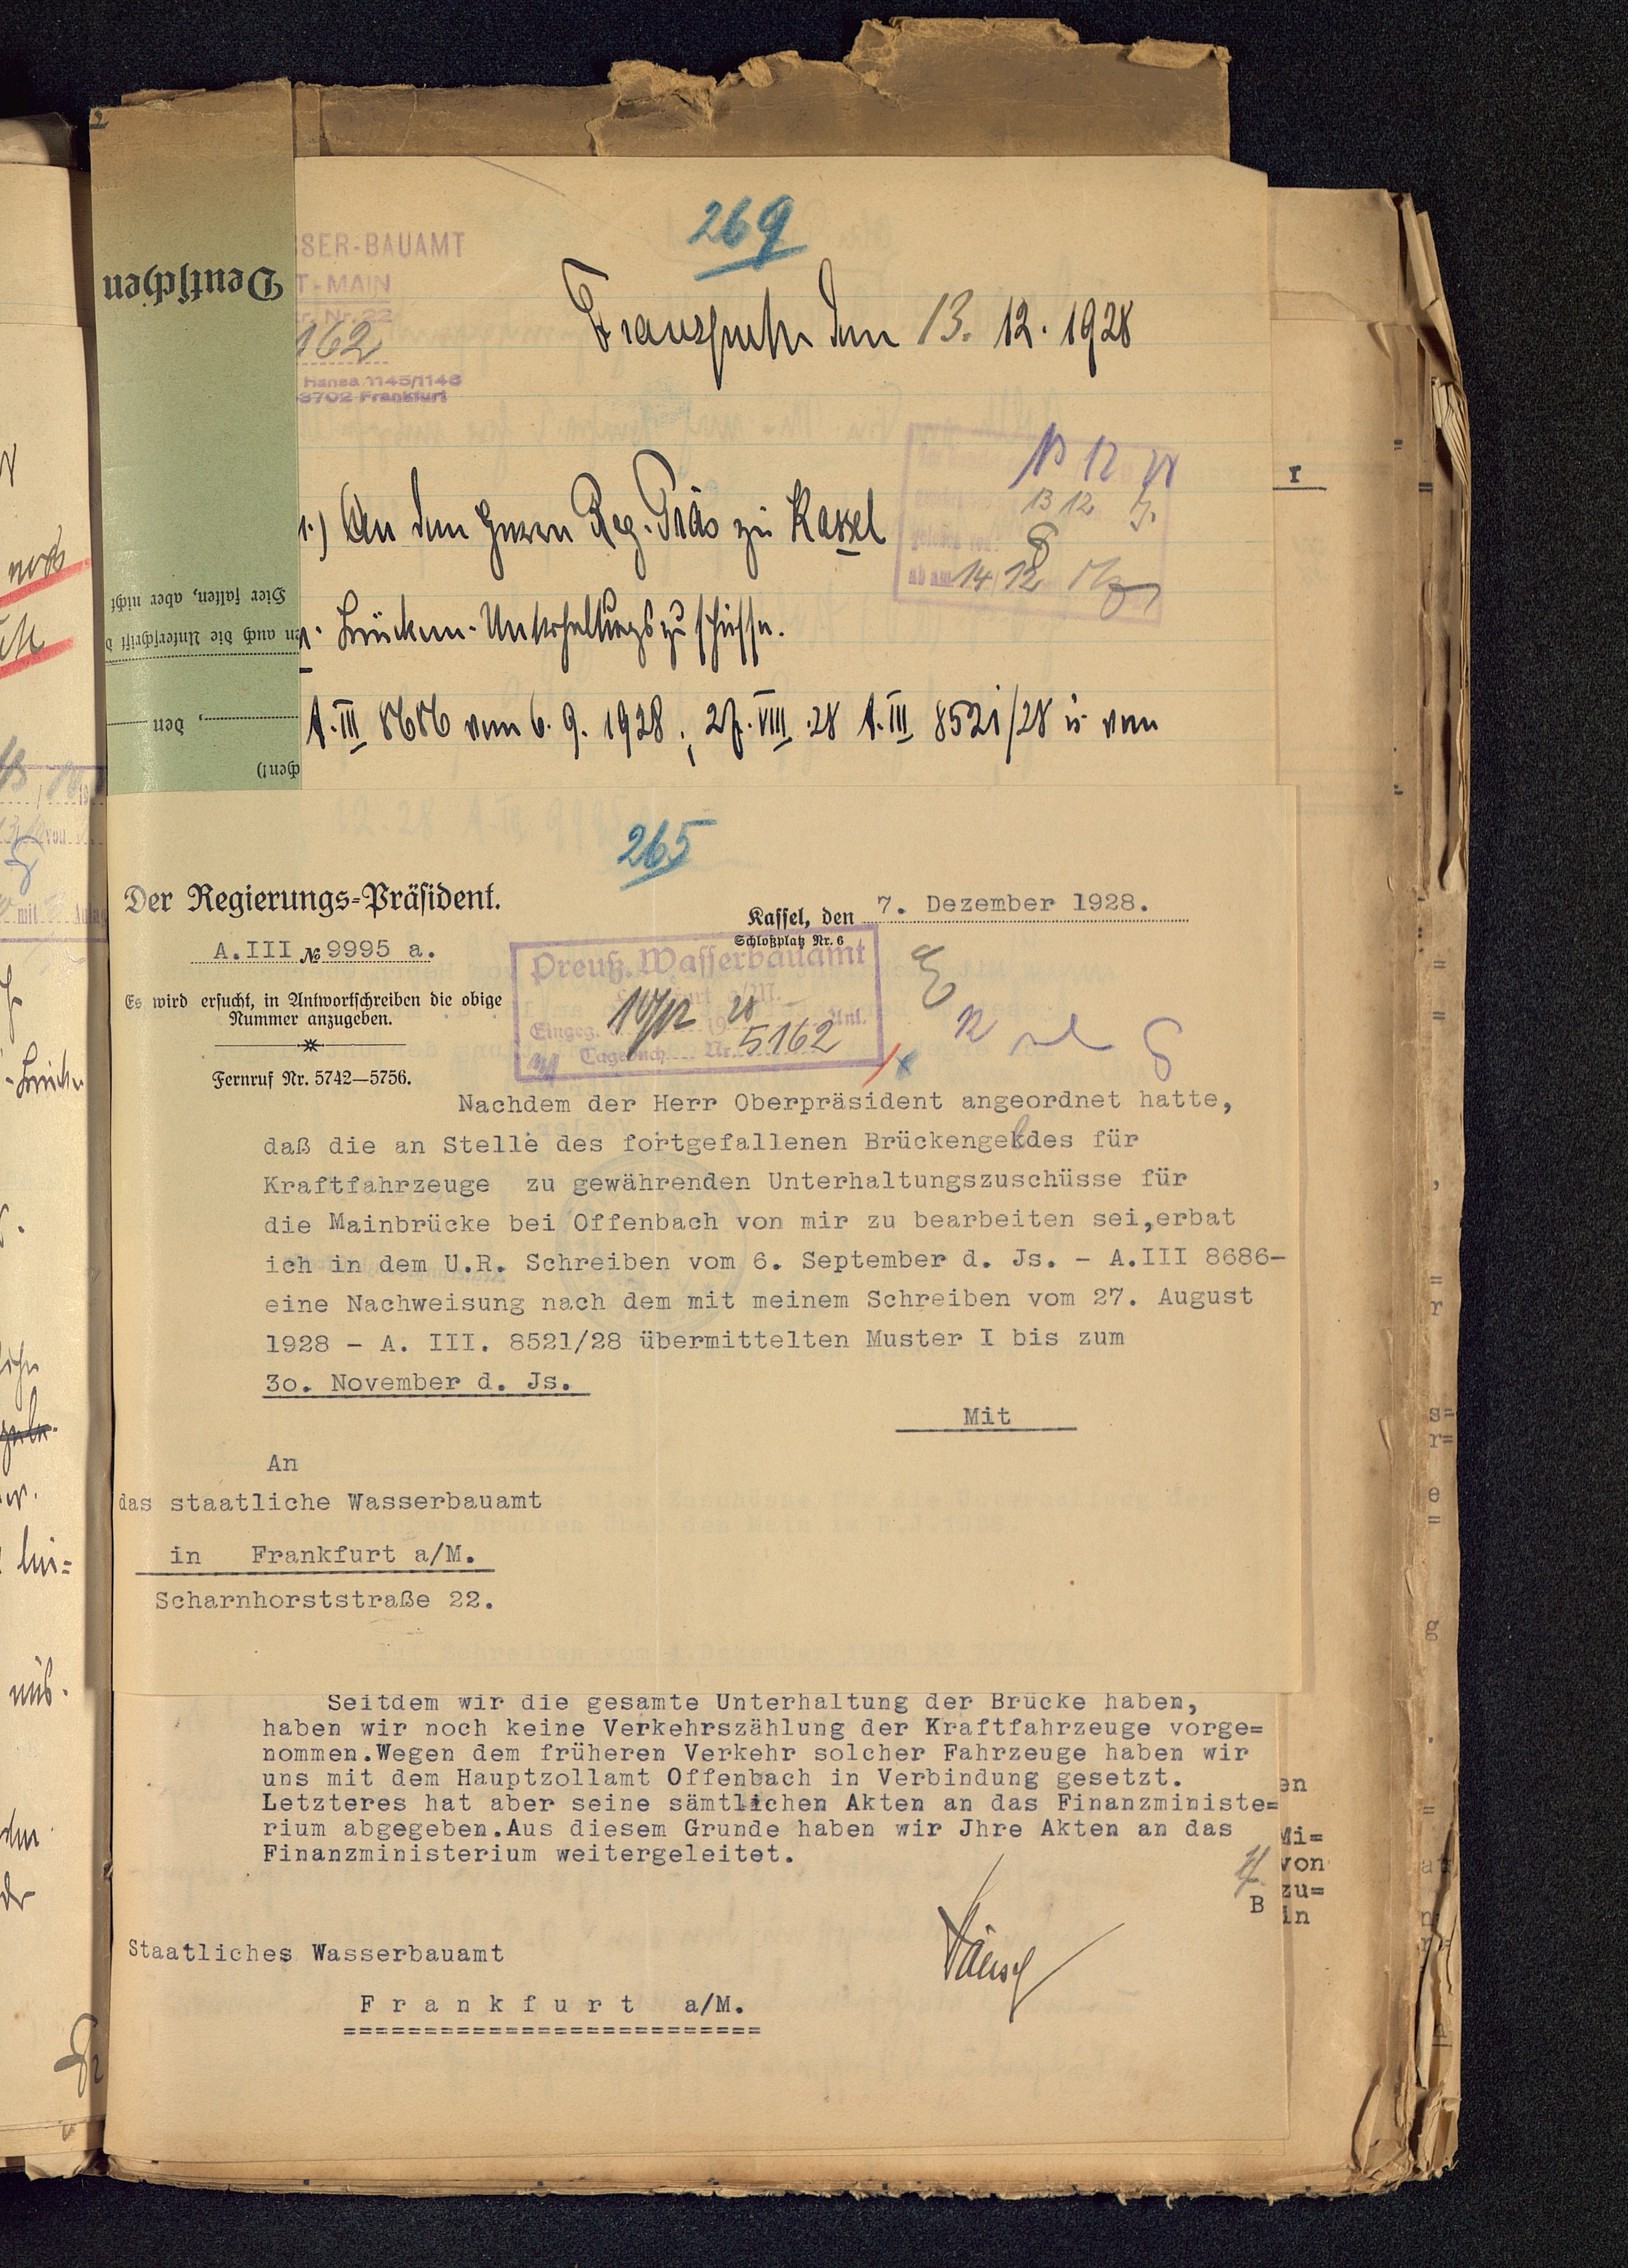 269
SSER-BAUAMT
T-MAIN
Nr. 22
162
Hansa 1145/1146
3702 Frankfurt
den 13. 12. 1928
Deutschen
An den Herrn Reg. Präs zu Kassel
13 12
ab am 14/12
Brücken-Unterhaltungszuschüsse.
Hier falten, aber nicht
en auch die Unterschrift d
, den
chen!)
A. III 8686 vom 6. 9. 1928, 27. VIII. 28 A. III 8521/28 u. vom
265
Der Regierungs-Präsident.
Kassel, den 7. Dezember 1928.
Schloßplatz Nr. 6
A.III № 9995 a.
Es wird ersucht, in Antwortschreiben die obige
Nummer anzugeben.
Fernruf Nr. 5742—5756.
Preuß. Wasserbauamt
Eingeg. 10/12 1928 Anl.
Tagebuch Nr. 5162
Nachdem der Herr Oberpräsident angeordnet hatte,
daß die an Stelle des fortgefallenen Brückengeldes für
Kraftfahrzeuge zu gewährenden Unterhaltungszuschüsse für
die Mainbrücke bei Offenbach von mir zu bearbeiten sei,erbat
ich in dem U.R. Schreiben vom 6. September d. Js. - A.III 8686-
eine Nachweisung nach dem mit meinem Schreiben vom 27. August
1928 - A. III. 8521/28 übermittelten Muster I bis zum
3o. November d. Js.
Mit
An
das staatliche Wasserbauamt
in Frankfurt a/M.
Scharnhorststraße 22.
Seitdem wir die gesamte Unterhaltung der Brücke haben,
haben wir noch keine Verkehrszählung der Kraftfahrzeuge vorge=
nommen.Wegen dem früheren Verkehr solcher Fahrzeuge haben wir
uns mit dem Hauptzollamt Offenbach in Verbindung gesetzt.
Letzteres hat aber seine sämtlichen Akten an das Finanzministe=
rium abgegeben.Aus diesem Grunde haben wir Jhre Akten an das
Finanzministerium weitergeleitet.
en
Mi=
von
zu=
in
B
Staatliches Wasserbauamt
Frankfurt a/M.